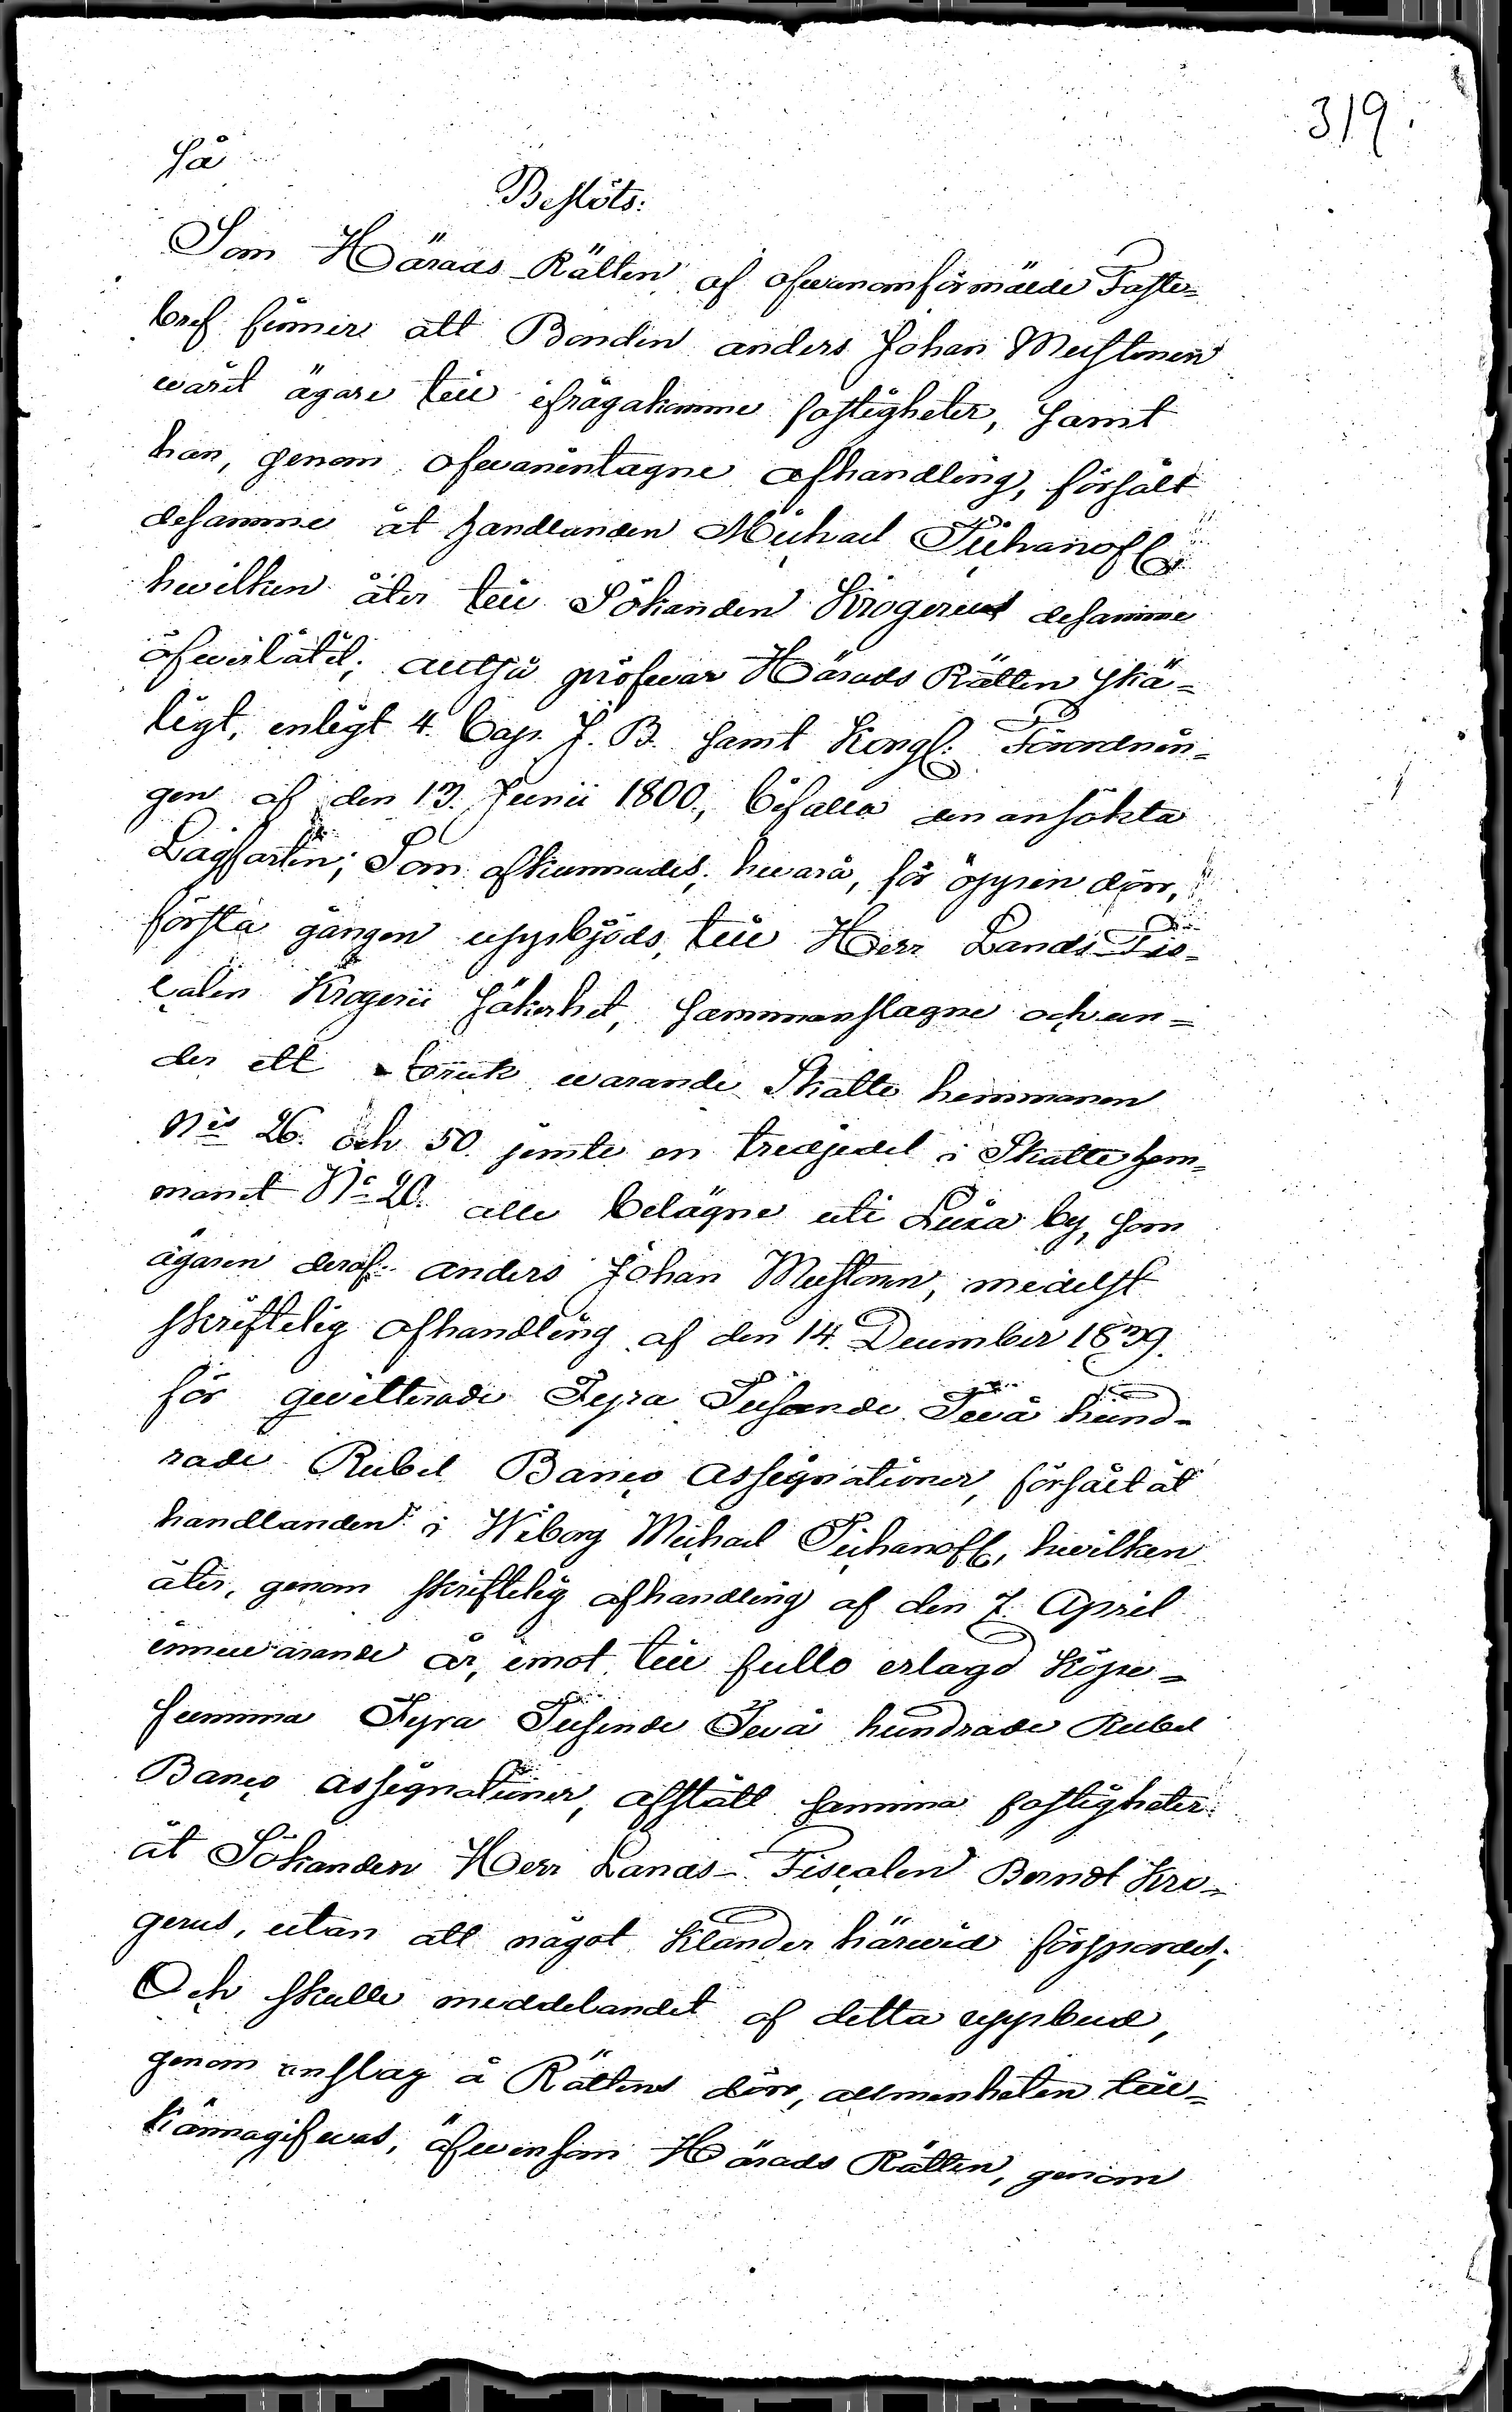 319.
så
Beslöts:
Som Härads-Rätten af ofwananförmälde Faste=
bref finner att Bonden anders Johan Mustonen
warit ägare till ifrågakomne fastigheter, samt
han, genom ofwanintagne afhandling, försålt
desamme åt handlanden Michael Tichanoff
hwilken åter till Sökanden Krogerus desamme
öfwerlåtit; alltså pröfwar Härads Rätten skä=
ligt, enligt 4. Cap. J. B. samt Kongl: Förordnin=
gen af den 13. Junii 1800., bifalla den ansökta
Lagfarten; Som afkunnades, hwarå, för öppen dörr,
första gången uppbjöds, till Herr Lands-Fis=
calen Krogerii säkerhet, sammanslagne och un=
der ett bruk warande Skatte hemmanen
N:is 26. och 50. jemte en tredjedel i Skatte hem=
manet N:o 20. alle belägne uti by, som
ägaren deraf anders Johan Mustonen, medelst
skriftelig afhandling af den 14. December 1839.
för qwitterade Fyra Tusende Twå hund=
rade Rubel Banco assignationer, försålt åt
handlanden i Wiborg Michael Tichanoff, hwilken
åter, genom skriftelig afhandling af den 7. April
innewarande år, emot till fullo erlagd Köpe=
summa Fyra Tusende Twå hundrade Rubel
Banco assignationer, afstått samma fastigheter
åt Sökanden Herr Lands-Fiscalen Berndt Kro=
gerus, utan att något Klander härwid förspordes;
Och skulle meddelandet af detta uppbud,
genom anslag å Rättens dörr, allmenheten till=
kännagifwas, äfwensom Härads Rätten, genom